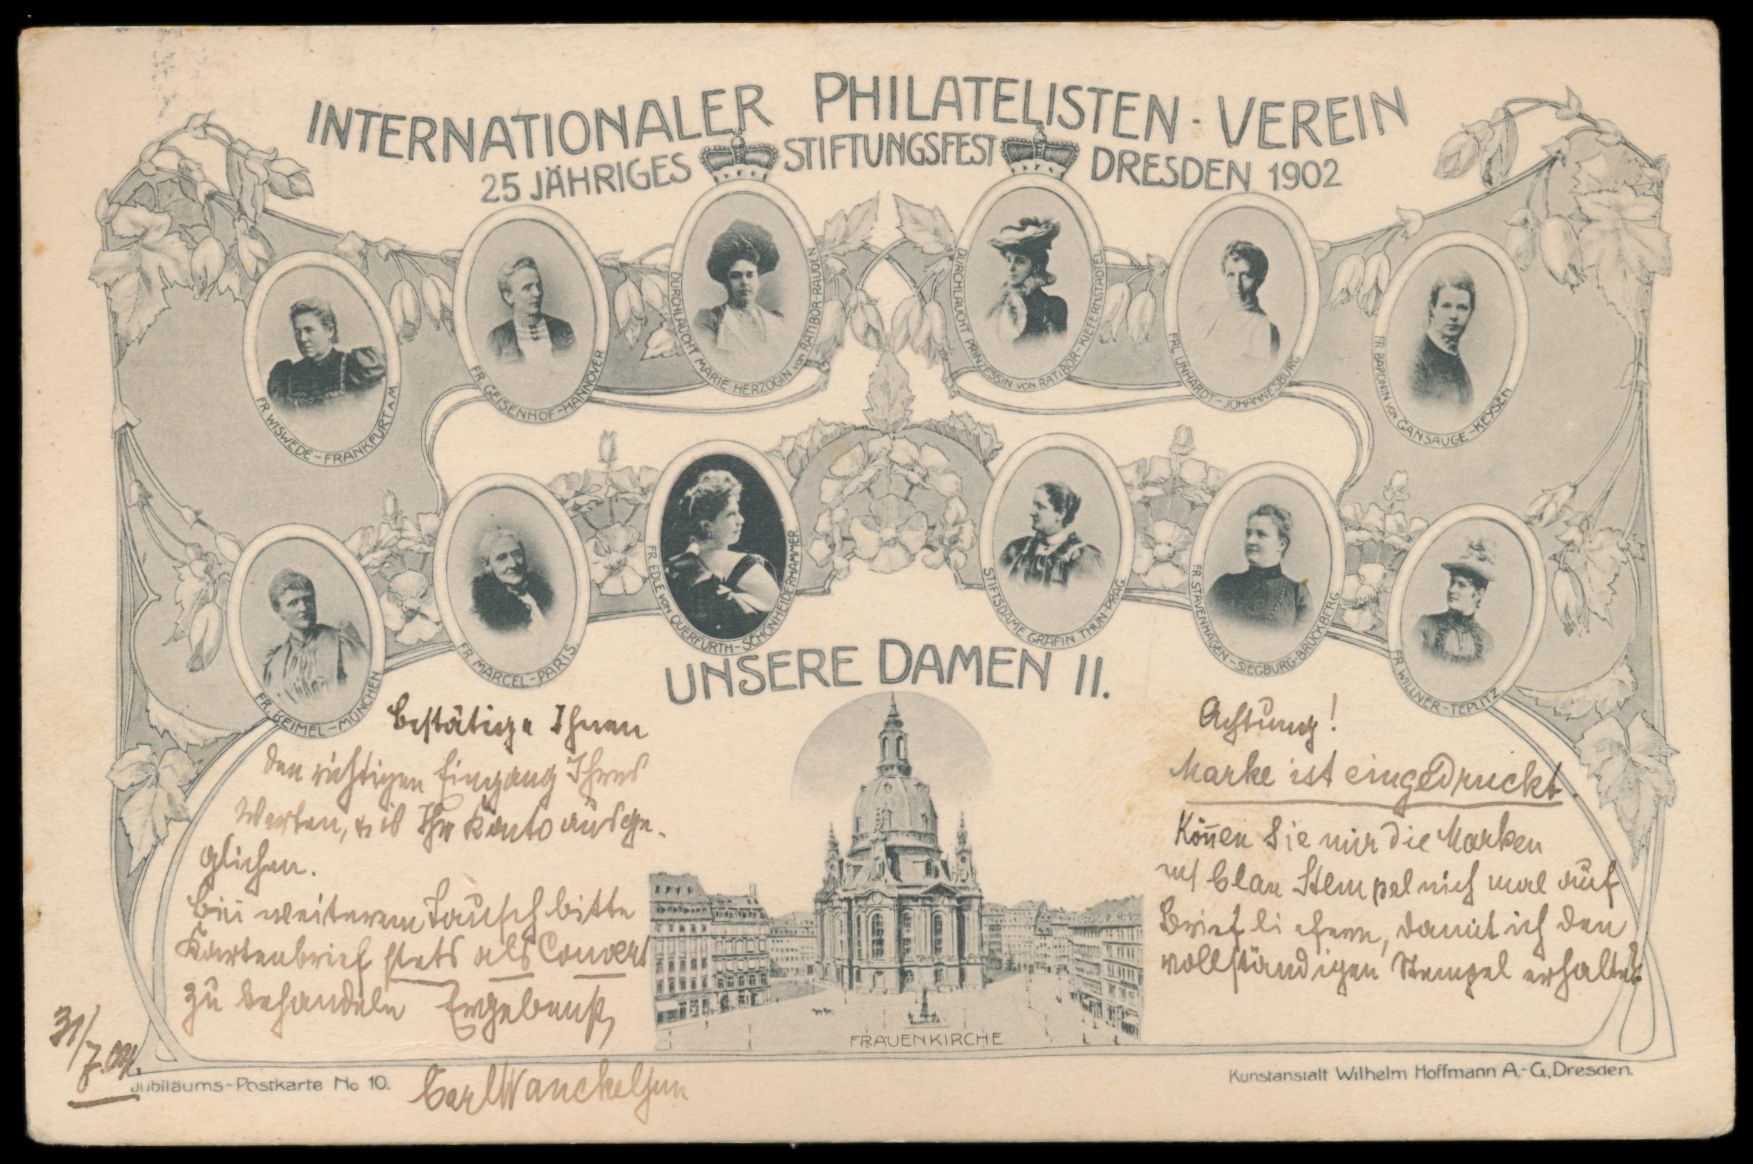 INTERNATIONALER PHILATELISTEN-VEREIN
25 JÄHRIGES STIFTUNGSFEST DRESDEN 1902
FR. WISWEDE-FRANKFURT A.M
FR. GEISENHOF-HANNOVER
DURCHLAUCHT MARIE HERZOGIN VON RATIBOR-RAUDEN
DURCHLAUCHT PRINZESSIN VON RATIBOR-KIEFERNSTÄDTEL
FRL. LINHARDT-JOHANNESBURG
FR. BARONIN VON GANSAUGE-KEYSEN
FR. BEIMEL-MÜNCHEN
FR. MARCEL-PARIS.
FR. EDLE VON QUERFURTH-SCHÖNHEIDERHAMMER
STIFTSDAME GRÄFIN THUN-PRAG
FR. STAVENHAGEN-SIEGBURG-BRÜCKBERG
FR. WILLNER-TEPLITZ
UNSERE DAMEN II.
Bestätige Ihnen
den richtigen Eingang Ihres
Werten, Ihr Konto ausge-
glichen.
Bei weiterem Tausch bitte
Kartenbrief stets als Couvert
zu behandeln Ergebenst
31/7.04.
Carl Wanckelhun
Achtung!
Marke ist eingedruckt
Können Sie mir die Marken
m/ blau Stempel nich mal auf
Brief liefern, damit ich den
vollständigen Stempel erhalte?
FRAUENKIRCHE
Jubiläums-Postkarte No 10.
Kunstanstalt Wilhelm Hoffmann A.-G., Dresden.